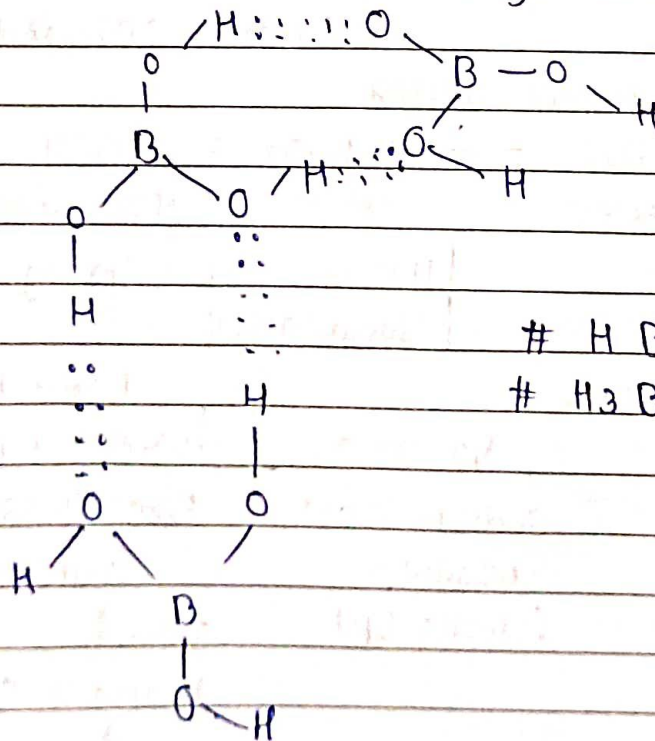 H O
O B — O
H
B O
H H
O O
H
# H
H
# H3
O O
H
B
O H